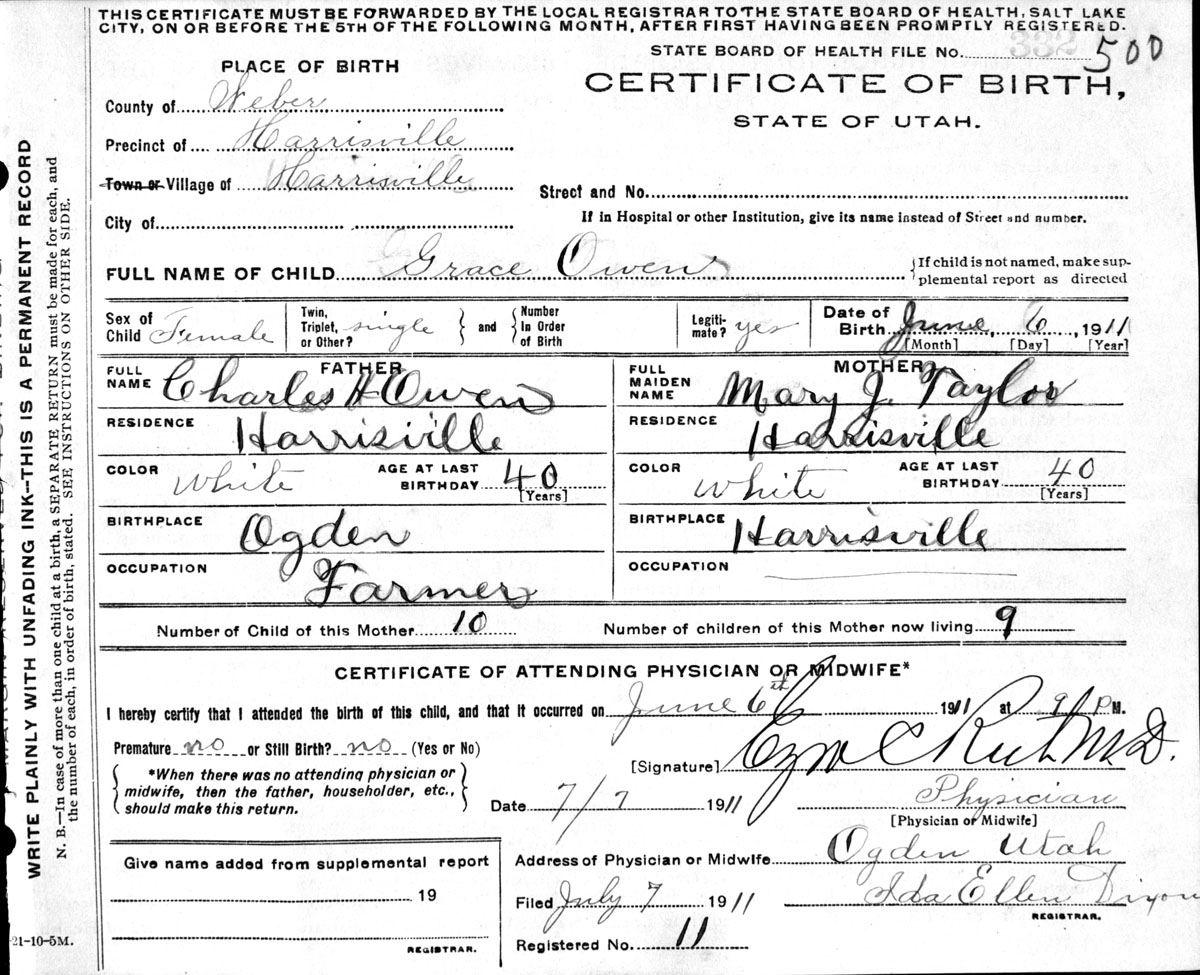 THIS CERTIFICATE MUST BE FORWARDED BY THE LOCAL REGISTRAR TO THE STATE BOARD OF HEALTH, SALT LAKE
CITY, ON OR BEFORE THE 5TH OF THE FOLLOWING MONTH, AFTER FIRST HAVING BEEN PROMPTLY REGISTERED.
STATE BOARD OF HEALTH FILE NO. 332 500
PLACE OF BIRTH
CERTIFICATE OF BIRTH,
STATE OF UTAH.
County of Weber
Precinct of Harrisville
Town or Village of Harrisville
Street and No.
City of
If in Hospital or other Institution, give its name instead of Street and number.
FULL NAME OF CHILD Grace Owen
{If child is not named, make sup-
plemental report as directed
Sex of Child Female
Twin, Triplet, or Other? single } and { Number In Order of Birth
Legiti-mate? yes
Date of Birth June 6, 1911
[Month] [Day] [Year]
FATHER
FULL NAME Charles H Owen
RESIDENCE Harrisville
COLOR White AGE AT LAST BIRTHDAY 40 [Years]
BIRTHPLACE Ogden
OCCUPATION Farmer
MOTHER
FULL MAIDEN NAME Mary J. Taylor
RESIDENCE Harrisville
COLOR White AGE AT LAST BIRTHDAY 40 [Years]
BIRTHPLACE Harrisville
OCCUPATION
Number of Child of this Mother 10 Number of children of this Mother now living 9
CERTIFICATE OF ATTENDING PHYSICIAN OR MIDWIFE*
I hereby certify that I attended the birth of this child, and that it occurred on June 6th 1911 at 9 P M.
Premature no or Still Birth? no (Yes or No)
{*When there was no attending physician or
midwife, then the father, householder, etc.,
should make this return.}
[Signature] Ezra C Rich M.D.
Date 7/7 1911
Physician
[Physician or Midwife]
Give name added from supplemental report
19
REGISTRAR.
Address of Physician or Midwife Ogden Utah
Filed July 7 1911 Ida Ellen Dixon
REGISTRAR.
Registered No. 11
21-10-5M.
WRITE PLAINLY WITH UNFADING INK--THIS IS A PERMANENT RECORD
N. B.—In case of more than one child at a birth, a SEPARATE RETURN must be made for each, and
the number of each, in order of birth, stated. SEE INSTRUCTIONS ON OTHER SIDE.